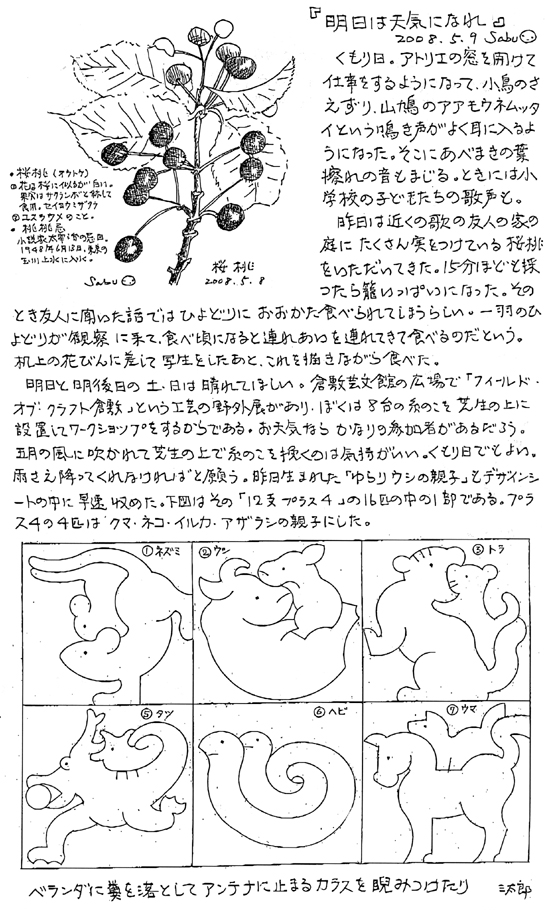 『明日は天気になれ』
2008.5.9 Sabu
くもり日。アトリエの窓を開けて
仕事をするようになって、小鳥のさ
えずり、山鳩のアアモウネムッタ
イという鳴き声がよく耳に入るよ
うになった。そこにあべまきの葉
擦れの音もまじる。ときには小
学校の子どもたちの歌声も。
昨日は近くの歌の友人の家の
庭にたくさん実をつけている桜桃
をいただいてきた。15分ほども採
ったら籠いっぱいになった。その
とき友人に聞いた話ではひよどりにおおかた食べられてしまうらしい。一羽のひ
よどりが観察に来て、食べ頃になると連れあいを連れてきて食べるのだという。
机上の花びんに差して写生をしたあと、これを描きながら食べた。
明日と明後日の土・日は晴れてほしい。倉敷芸文館の広場で「フィールド・
オブ・クラフト倉敷」という工芸の野外展があり、ぼくは8台の糸のこを芝生の上に
設置してワークショップをするからである。お天気ならかなりの参加者があるだろう。
五月の風に吹かれて芝生の上で糸のこを挽くのは気持がいい。くもり日でもよい。
雨さえ降ってくれなければと願う。昨日生まれた「ゆらりウシの親子」もデザインシ
ートの中に早速収めた。下図はその「12支プラス4」の16匹の中の1部である。プラ
ス4の4匹はクマ・ネコ・イルカ・アザラシの親子にした。
・桜桃(オウトウ)
①花は桜に似るが白い。
果実はサクランボと称して
食用。セイヨウミザクラ
②ユスラウメのこと。
・桜桃忌
小説家太宰治の忌日。
1948年6月13日、東京の
玉川上水に入水。
Sabu
桜桃
2008.5.8
①ネズミ
②ウシ
③トラ
⑤タツ
⑥ヘビ
⑦ウマ
ベランダに糞を落としてアンテナに止まるカラスを睨みつけたり 三太郎